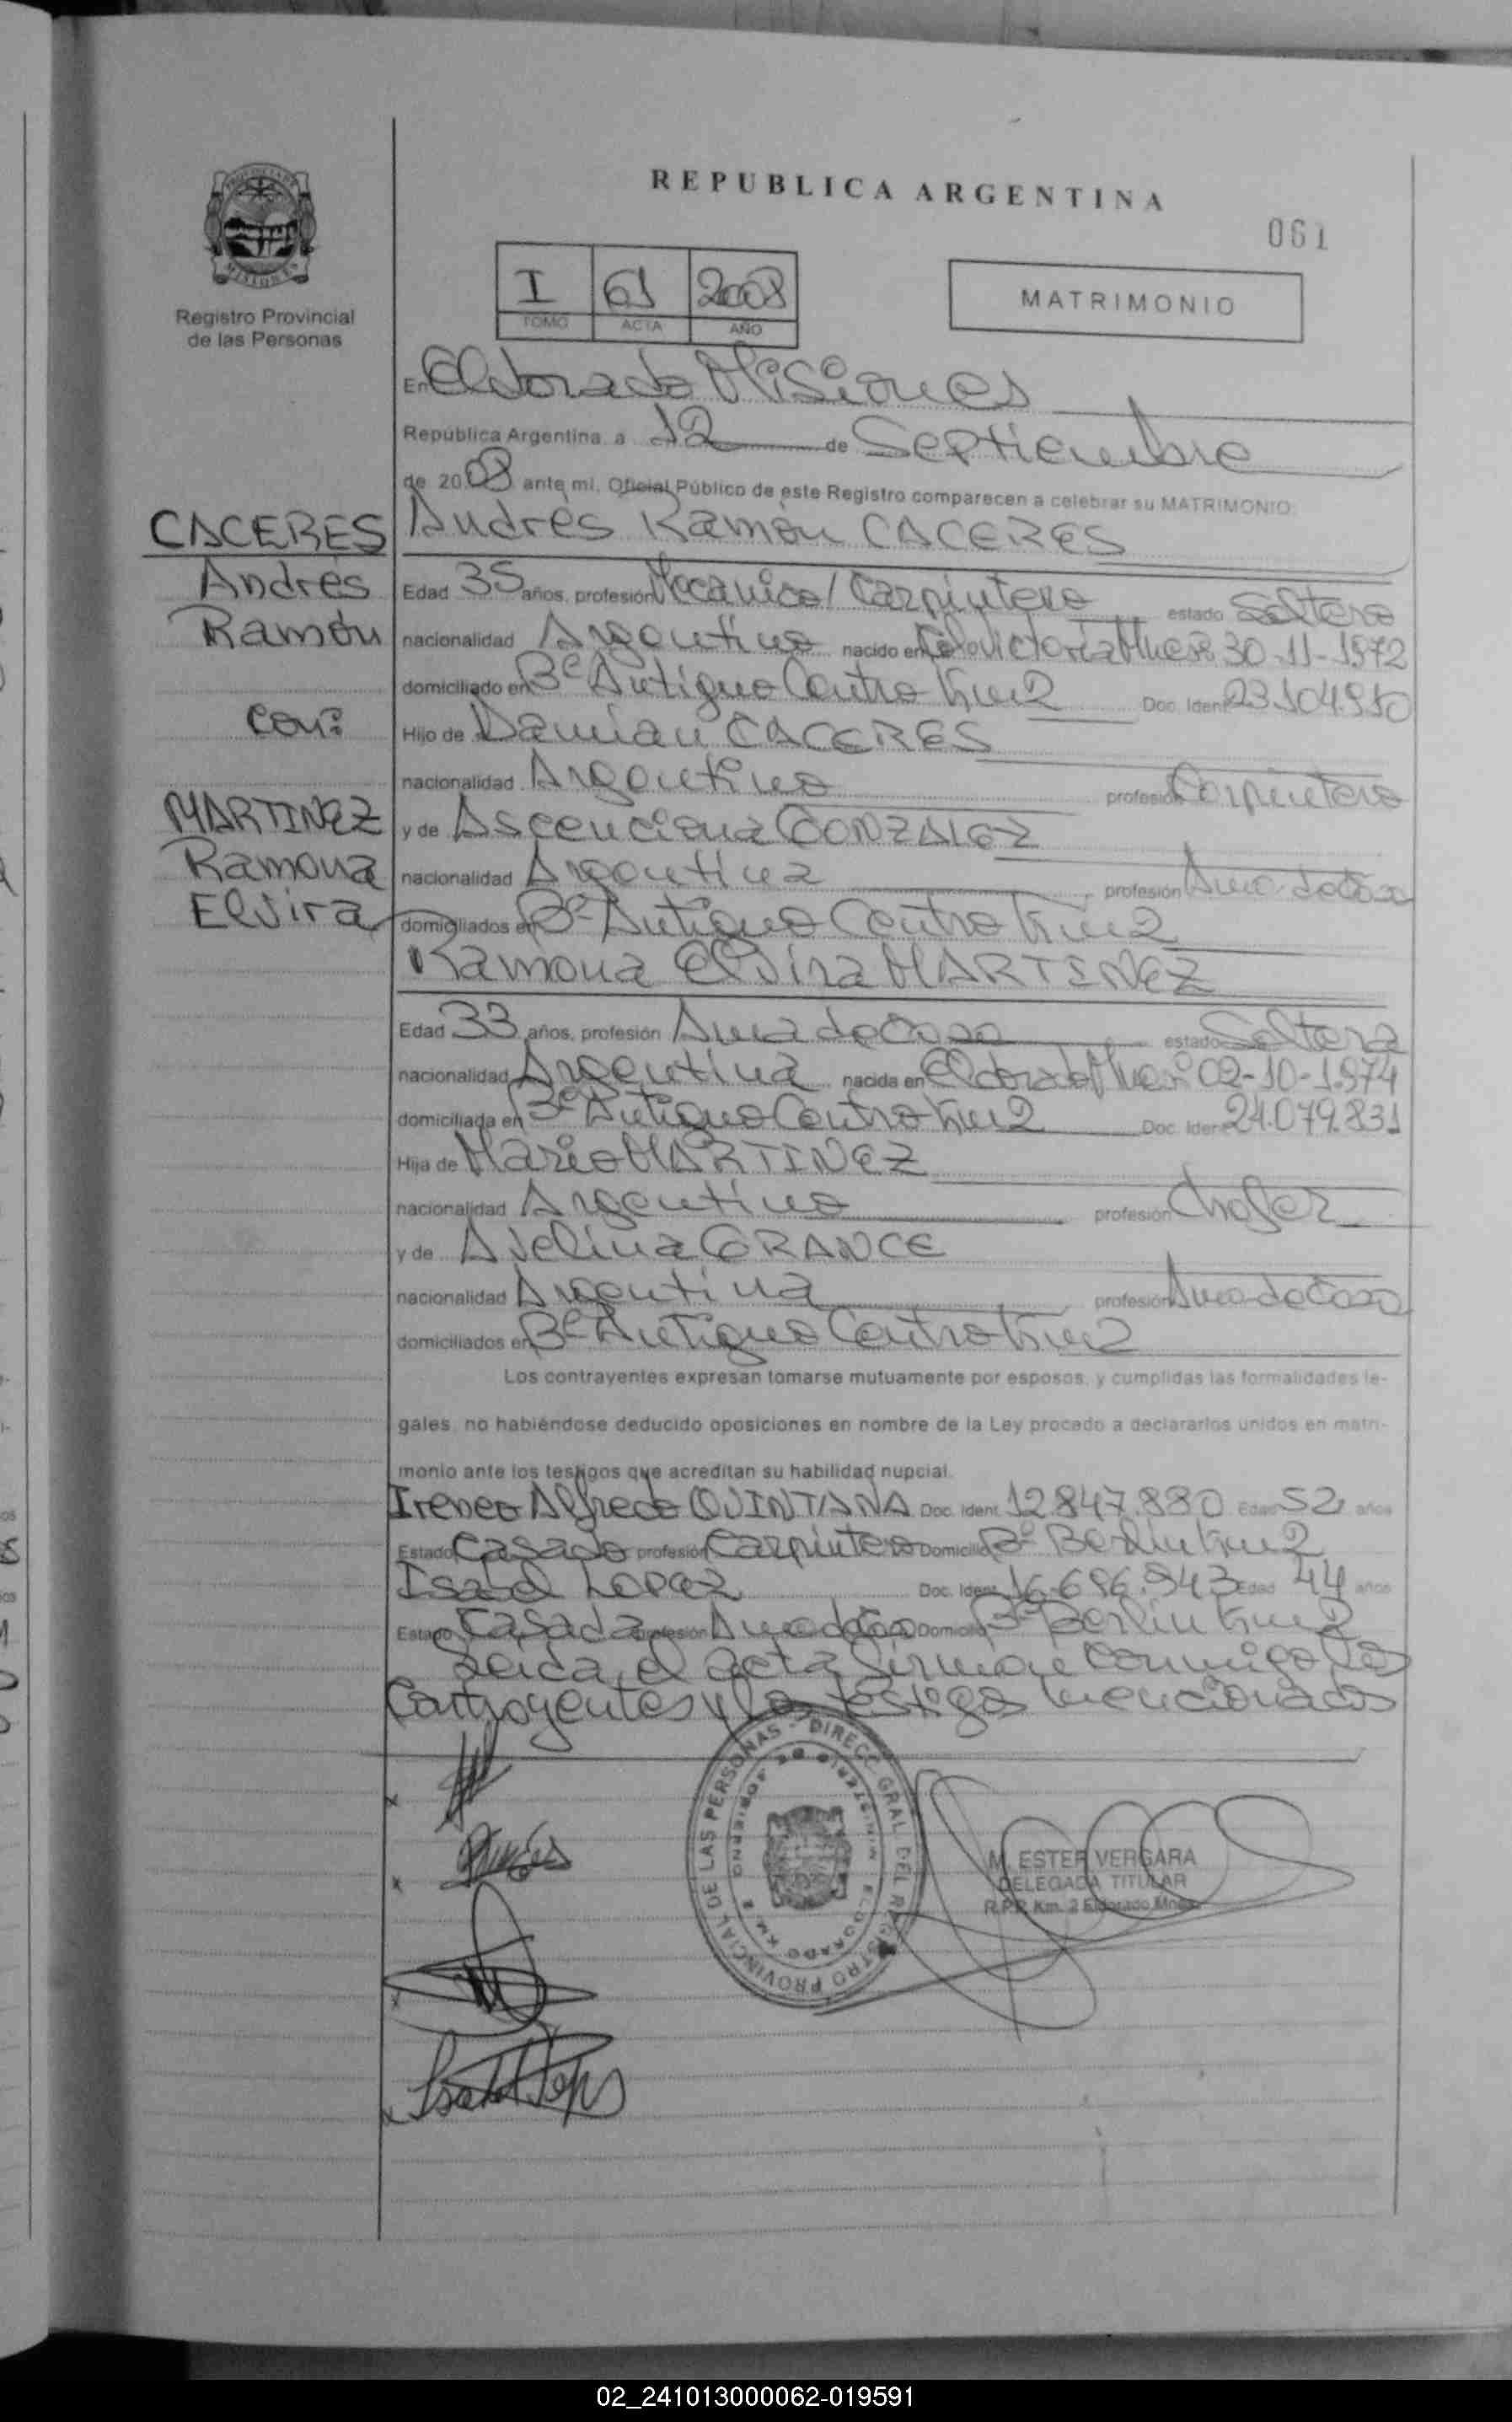 REPUBLICA ARGENTINA
061
Registro Provincial
de las Personas
I 61 2008
TOMO ACTA AÑO
MATRIMONIO
En Eldorado Misiones
República Argentina, a 12 de Septiembre
de 2008 ante mi, Oficial Público de este Registro comparecen a celebrar su MATRIMONIO:
CACERES
Andrés
Ramón
con:
MARTINEZ
Ramona
Elvira
Andrés Ramón CACERES
Edad 35 años, profesión Mecanico/Carpintero estado Soltero
nacionalidad Argentino nacido en Victoria Mnes 30-11-1972
domiciliado en Bº Antiguo Centro Km 2 Doc. Ident. 23.104.950
Hijo de Damian CACERES
nacionalidad Argentino profesión Carpintero
y de Ascenciona GONZALEZ
nacionalidad Argentina profesión Ama de Casa
domiciliados en Bº Antiguo Centro Km 2
Ramona Elvira MARTINEZ
Edad 33 años, profesión Ama de Casa estado Soltera
nacionalidad Argentina nacida en Eldorado Mnes 02-10-1.974
domiciliada en Bº Antiguo Centro Km 2 Doc. Ident. 24.079.831
Hija de Mario MARTINEZ
nacionalidad Argentino profesión Chofer
y de Avelina GRANCE
nacionalidad Argentina profesión Ama de Casa
domiciliados en Bº Antiguo Centro Km 2
Los contrayentes expresan tomarse mutuamente por esposos, y cumplidas las formalidades le-
gales, no habiéndose deducido oposiciones en nombre de la Ley procedo a declararlos unidos en matri-
monio ante los testigos que acreditan su habilidad nupcial.
Ireneo Alfredo QUINTANA Doc. Ident. 12.847.880 Edad 52 años
Estado Casado profesión Carpintero Domicilio Bº Berlin Km 2
Isabel LOPEZ Doc. Ident. 16.686.943 Edad 44 años
Estado Casada profesión Ama de Casa Domicilio Bº Berlin Km 2
Leida el acta firman conmigo los
Contrayentes y los testigos mencionados
DIRECC. GRAL. DEL REGISTRO PROVINCIAL DE LAS PERSONAS
MINISTERIO DE GOBIERNO
ELDORADO KM. 2
M. ESTER VERGARA
DELEGADA TITULAR
R.P.P. Km. 2 Eldorado Mnes.
02_241013000062-019591